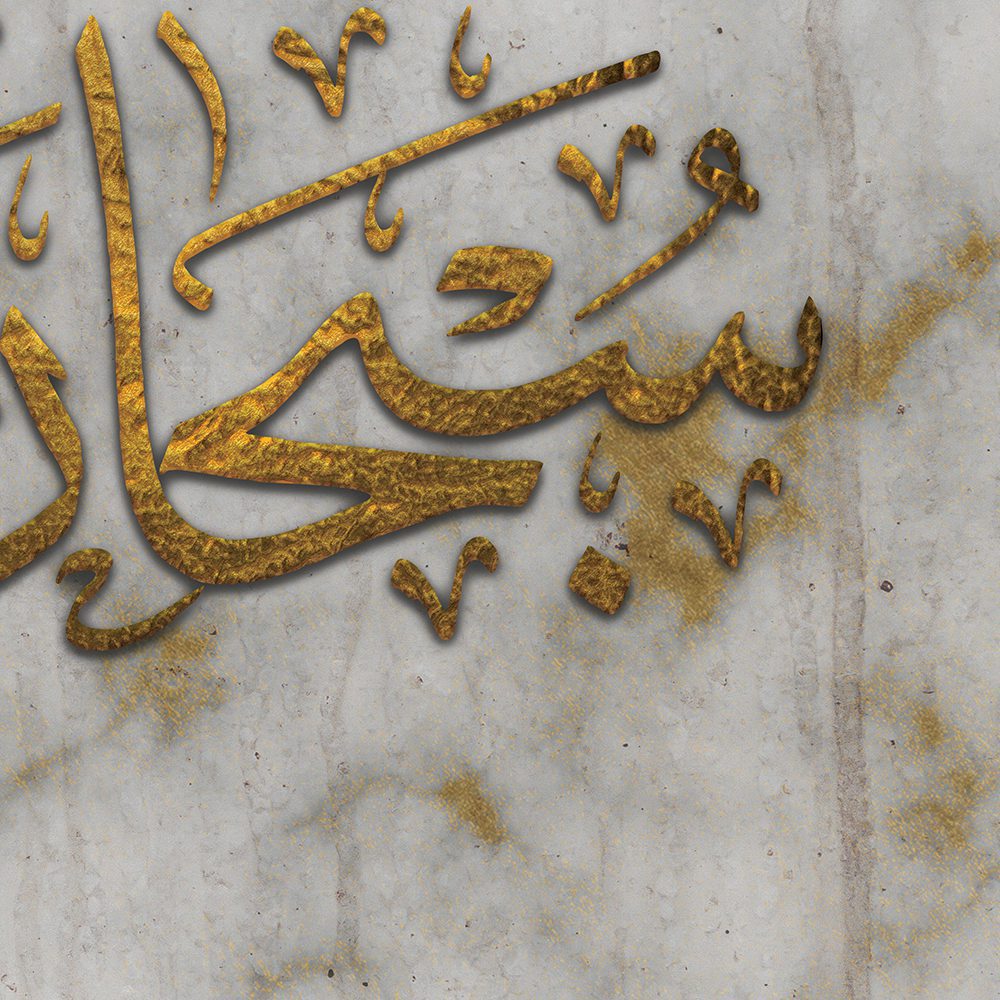 سُبحان